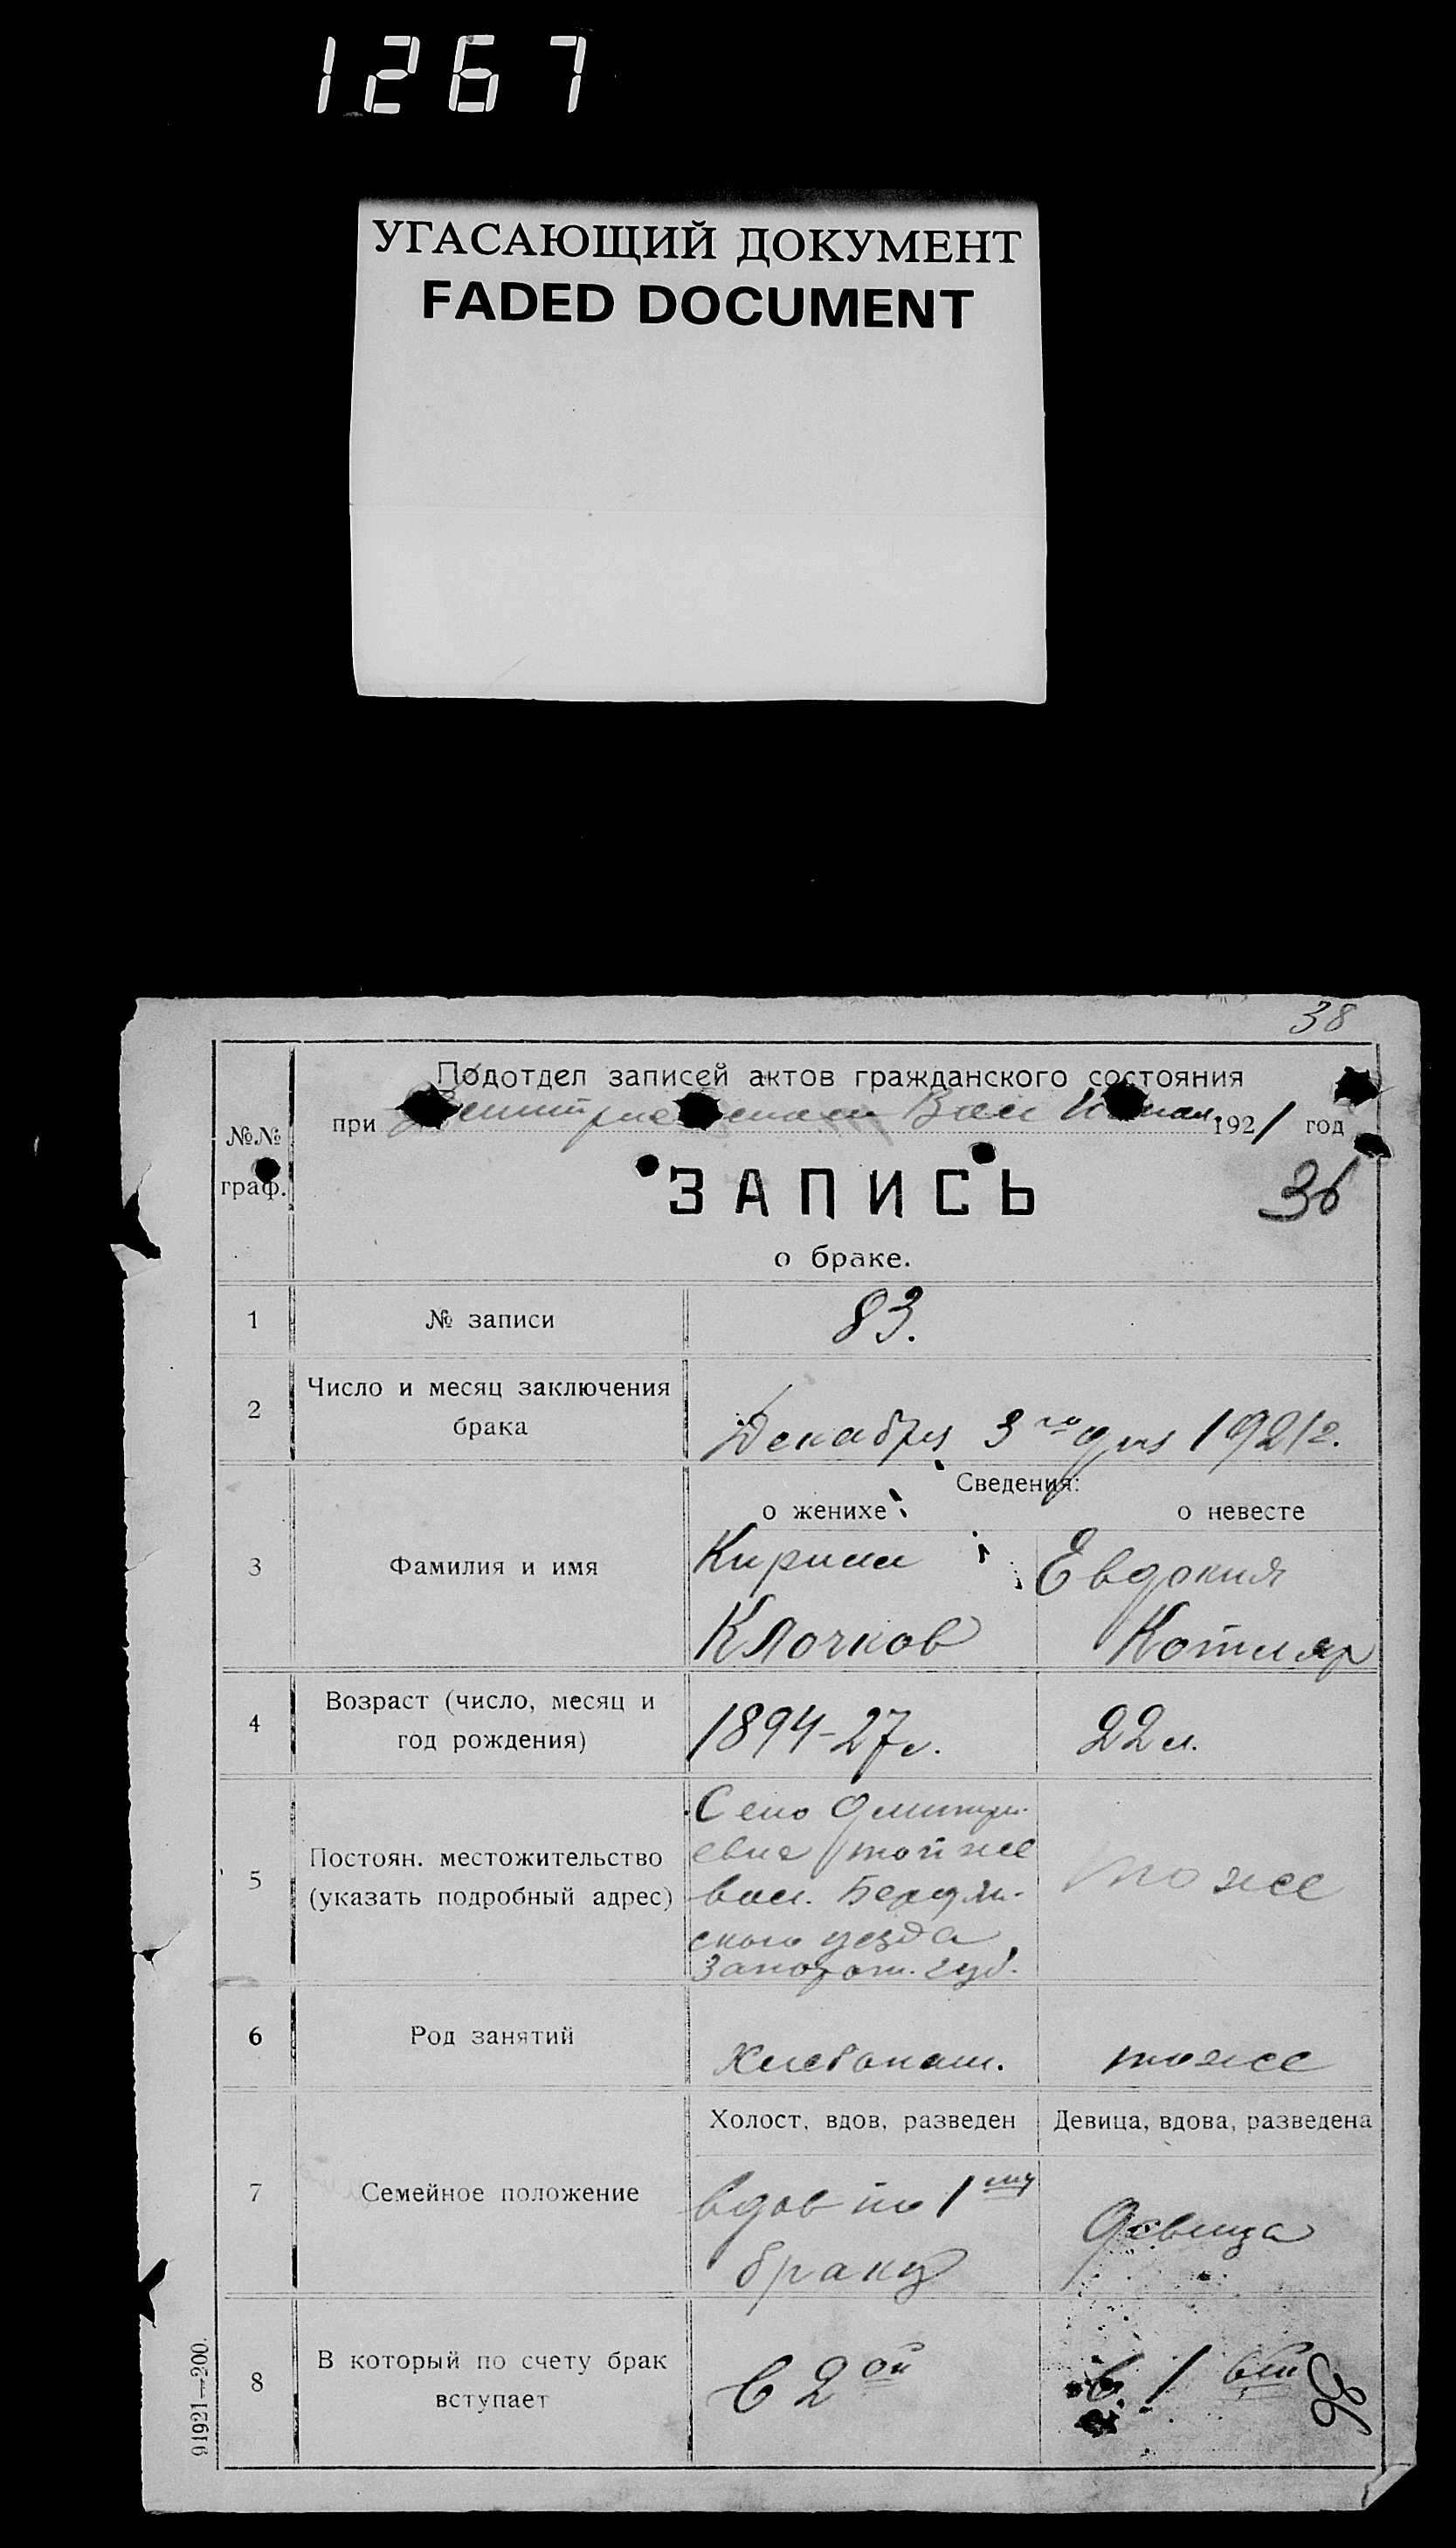 1267
УГАСАЮЩИЙ ДОКУМЕНТ
FADED DOCUMENT
38
Подотдел записей актов гражданского состояния
при Вол 1921 год
№№ граф.
ЗАПИСЬ
36
о браке.
1 № записи 83.
2 Число и месяц заключения
брака
Декабря 3го дня 1921 г.
Сведения:
о женихе о невесте
3 Фамилия и имя
Кирилл Евдокия
Клочков Котляр
4 Возраст (число, месяц и
год рождения)
1894-27 л. 22 л.
5 Постоян. местожительство
(указать подробный адрес)
Село Дмитри-
евка той же
вол. Бердян-
ского уезда
Запорож. губ.
тоже
6 Род занятий
Хлебопаш. тоже
Холост, вдов, разведен Девица, вдова, разведена
7 Семейное положение
вдов по 1му
браку
Девица
8 В который по счету брак
вступает
в 2ой в 1вый
36
91921—200.